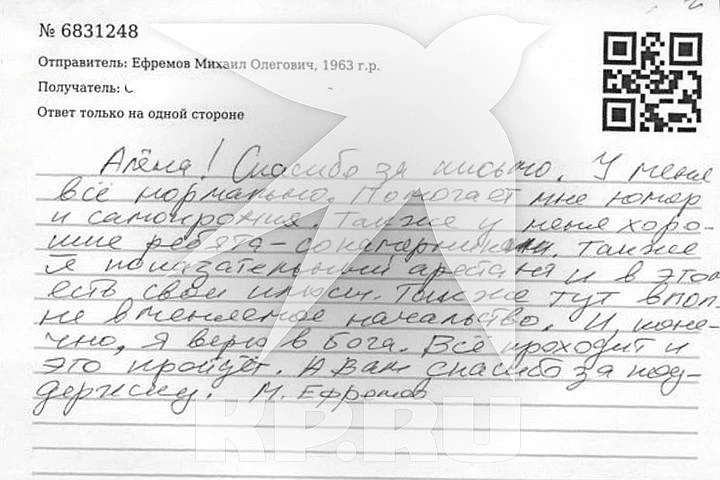 № 6831248
Отправитель: Ефремов Михаил Олегович, 1963 г.р.
Получатель:
Ответ только на одной стороне
Алёна! Спасибо за письмо. У меня
всё нормально. Помогает мне юмор
и самоирония. Также у меня хоро-
шие ребята - сокамерники. Также
я показательный арестант и в этом
есть свои плюсы. Также тут впол-
не вменяемое начальство. И, коне-
чно, я верю в Бога. Всё проходит и
это пройдёт. А Вам спасибо за под-
держку. М. Ефремов
KP.RU